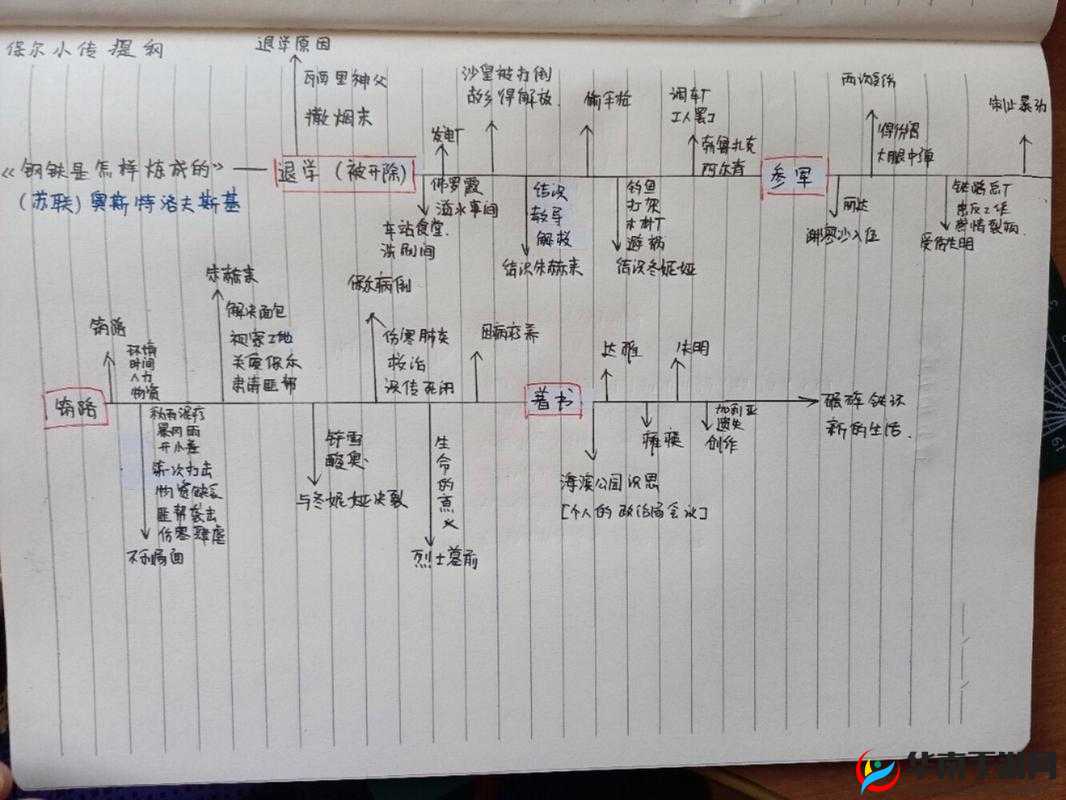 保尔小传提纲
退学原因
瓦西里神父
撒烟末
《钢铁是怎样炼成的》
(苏联)奥斯特洛夫斯基
退学(被开除)
发电厂
佛罗霞
溢水事间
车站食堂
洗刷间
沙皇被打倒
故乡得解放
结识
教导
解救
结识朱赫来
偷手枪
钓鱼
打架
木材厂
避祸
结识冬妮娅
调车厂
工人罢工
勃鲁扎克
阿尔青
参军
两次负伤
得伤寒
大眼中弹
丽达
谢廖沙入伍
制止暴动
铁路总厂
肃反工作
受伤失明
筑路
筑路
环境
时间
人力
物资
秋雨泥泞
暴风雨
开小差
第一次打击
物资缺乏
匪帮袭击
伤寒肆虐
不利局面
朱赫来
解决面包
视察工地
关爱保尔
肃清匪帮
铲雪
酸臭
与冬妮娅决裂
保尔病倒
伤寒肺炎
救治
误传死闭
生命的意义
烈士墓前
因病疗养
著书
达雅
失明
海滨公园沉思
[个人的政治局会议]
瘫痪
加利亚
遗失
创作
砸碎铁环
新的生活
华南手游网